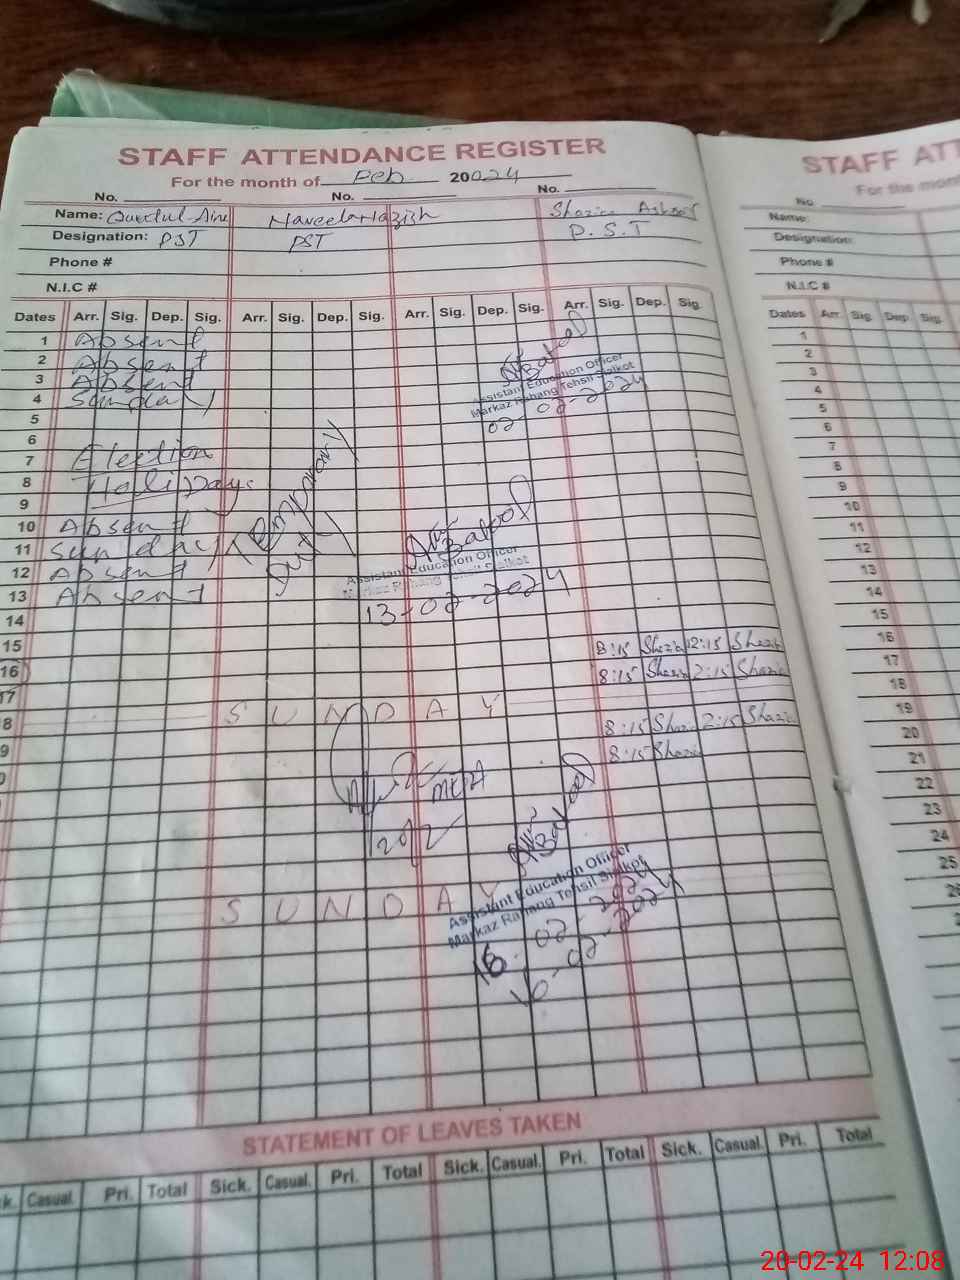 STAFF ATTENDANCE REGISTER
STAFF ATT
For the month of Feb 20024
For the mon
No. No. No.
No
Name: Naveela Nazish Shazia
Name:
Designation: PST PST P.S.T
Designation:
Phone #
Phone #
N.I.C #
N.I.C #
Dates Arr. Sig. Dep. Sig. Arr. Sig. Dep. Sig. Arr. Sig. Dep. Sig. Arr. Sig. Dep. Sig.
Dates Arr. Sig. Dep. Sig.
1 Absent
2 Absent
3 Absent
4 Sunday
Assistant Education Officer
Markaz Rahang Tehsil Sialkot
02-02-2024
5
6
7 Election
8 Holi Days
9
10 Absent
11 Sunday
12 Absent
13 Absent
Temporary
Duty
Assistant Education Officer
Markaz Rahang Tehsil Sialkot
13-02-2024
14
15
16 8:15 Shazia 12:15 Shazia
17 8:15 Shazia 2:15 Shazia
8 SUNDAY
9 8:15 Shazia 2:15 Shazia
0 8:15 Shazia
MEA
20/2
SUNDAY
Assistant Education Officer
Markaz Rahang Tehsil Sialkot
16-02-2024
1
2
3
4
5
6
7
8
9
10
11
12
13
14
15
16
17
18
19
20
21
22
23
24
25
26
STATEMENT OF LEAVES TAKEN
k. Casual. Pri. Total Sick. Casual. Pri. Total Sick. Casual. Pri. Total Sick. Casual. Pri. Total
20-02-24 12:08